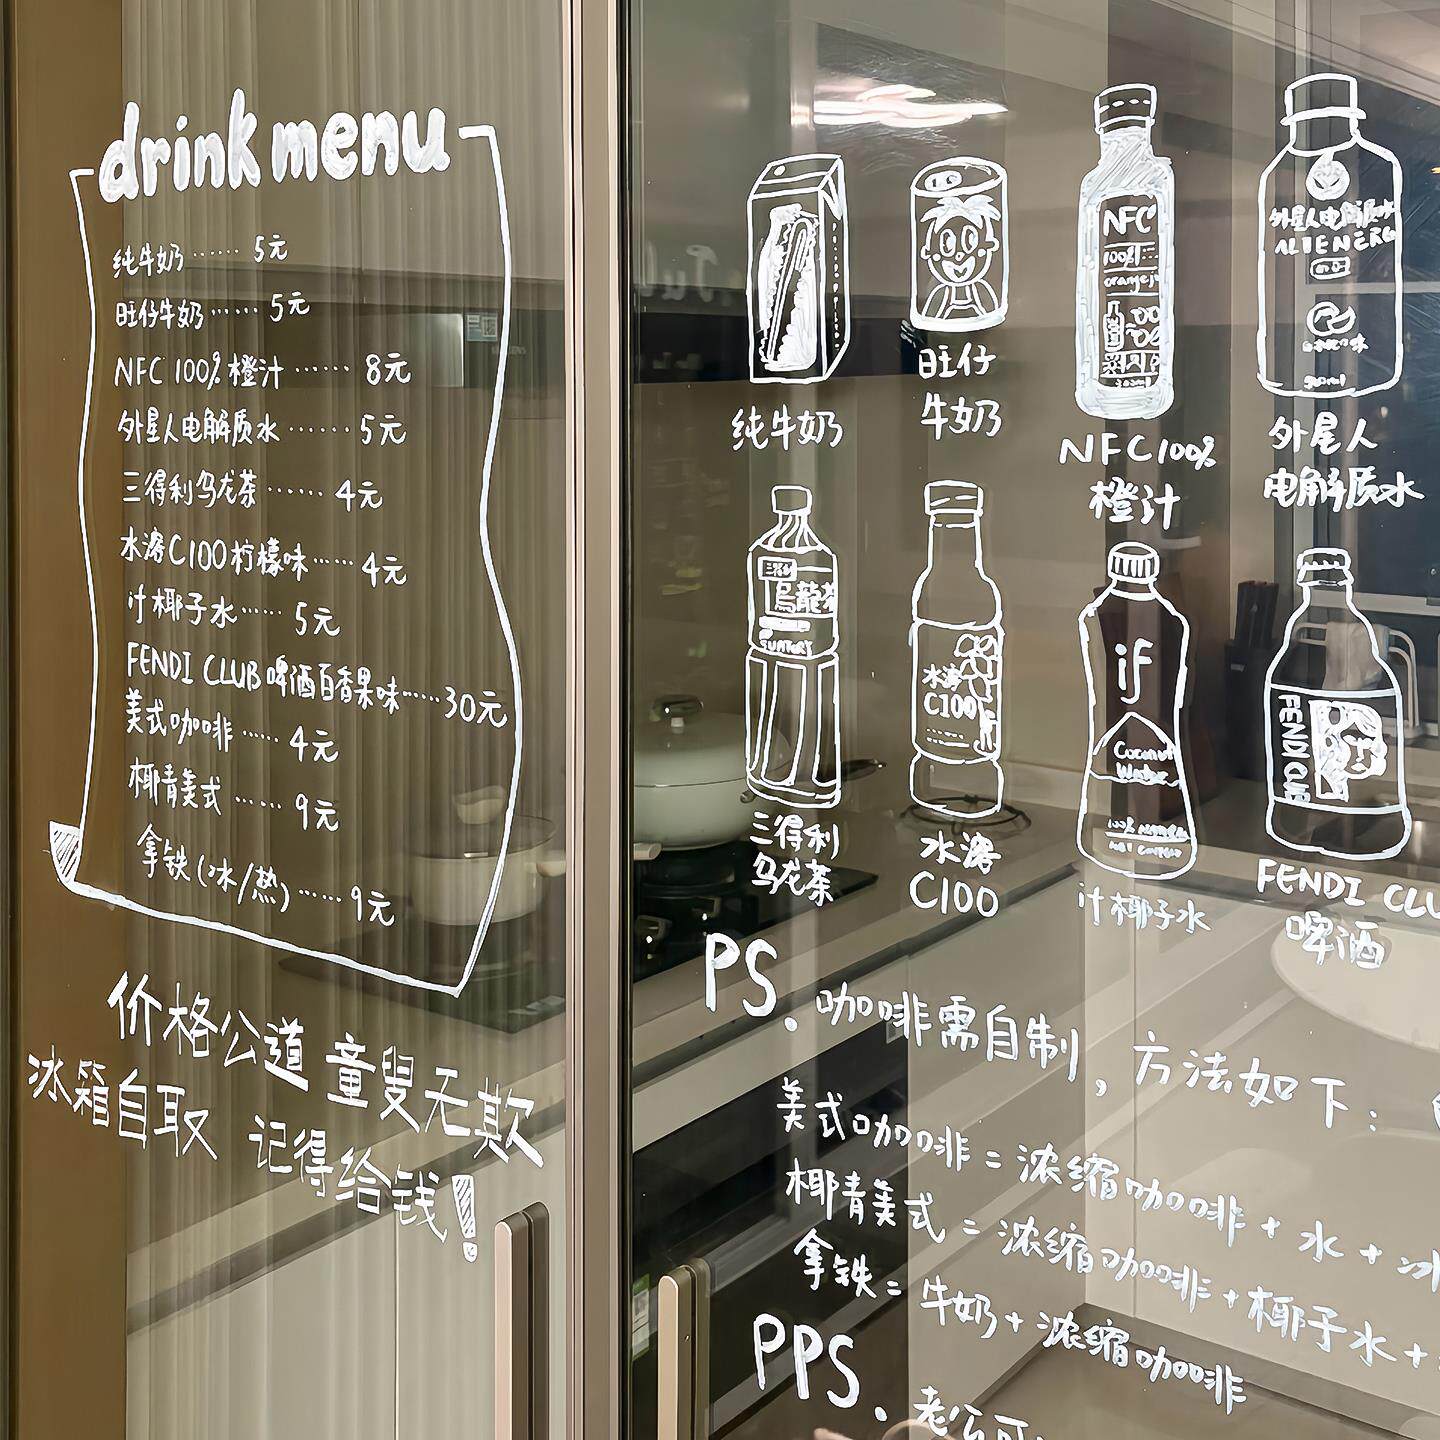 drink menu
纯牛奶 …… 5元
旺仔牛奶 …… 5元
NFC 100% 橙汁 …… 8元
外星人电解质水 …… 5元
三得利乌龙茶 …… 4元
水溶C100柠檬味 …… 4元
if椰子水 …… 5元
FENDI CLUB啤酒百香果味 …… 30元
美式咖啡 …… 4元
椰青美式 …… 9元
拿铁(冰/热) …… 9元
价格公道 童叟无欺
冰箱自取 记得给钱!
NFC
100%
orangej
外星人电解质水
ALIENERG
纯牛奶
旺仔
牛奶
NFC100%
橙汁
外星人
电解质水
三得利
烏龍茶
SUNTORY
水溶
C100
if
Coconut
Water
FENDI CLUB
三得利
乌龙茶
水溶
C100
if椰子水
FENDI CLU
啤酒
PS. 咖啡需自制, 方法如下:
美式咖啡 = 浓缩咖啡 + 水 + 冰
椰青美式 = 浓缩咖啡 + 椰子水 +
拿铁 = 牛奶 + 浓缩咖啡
PPS. 老公可